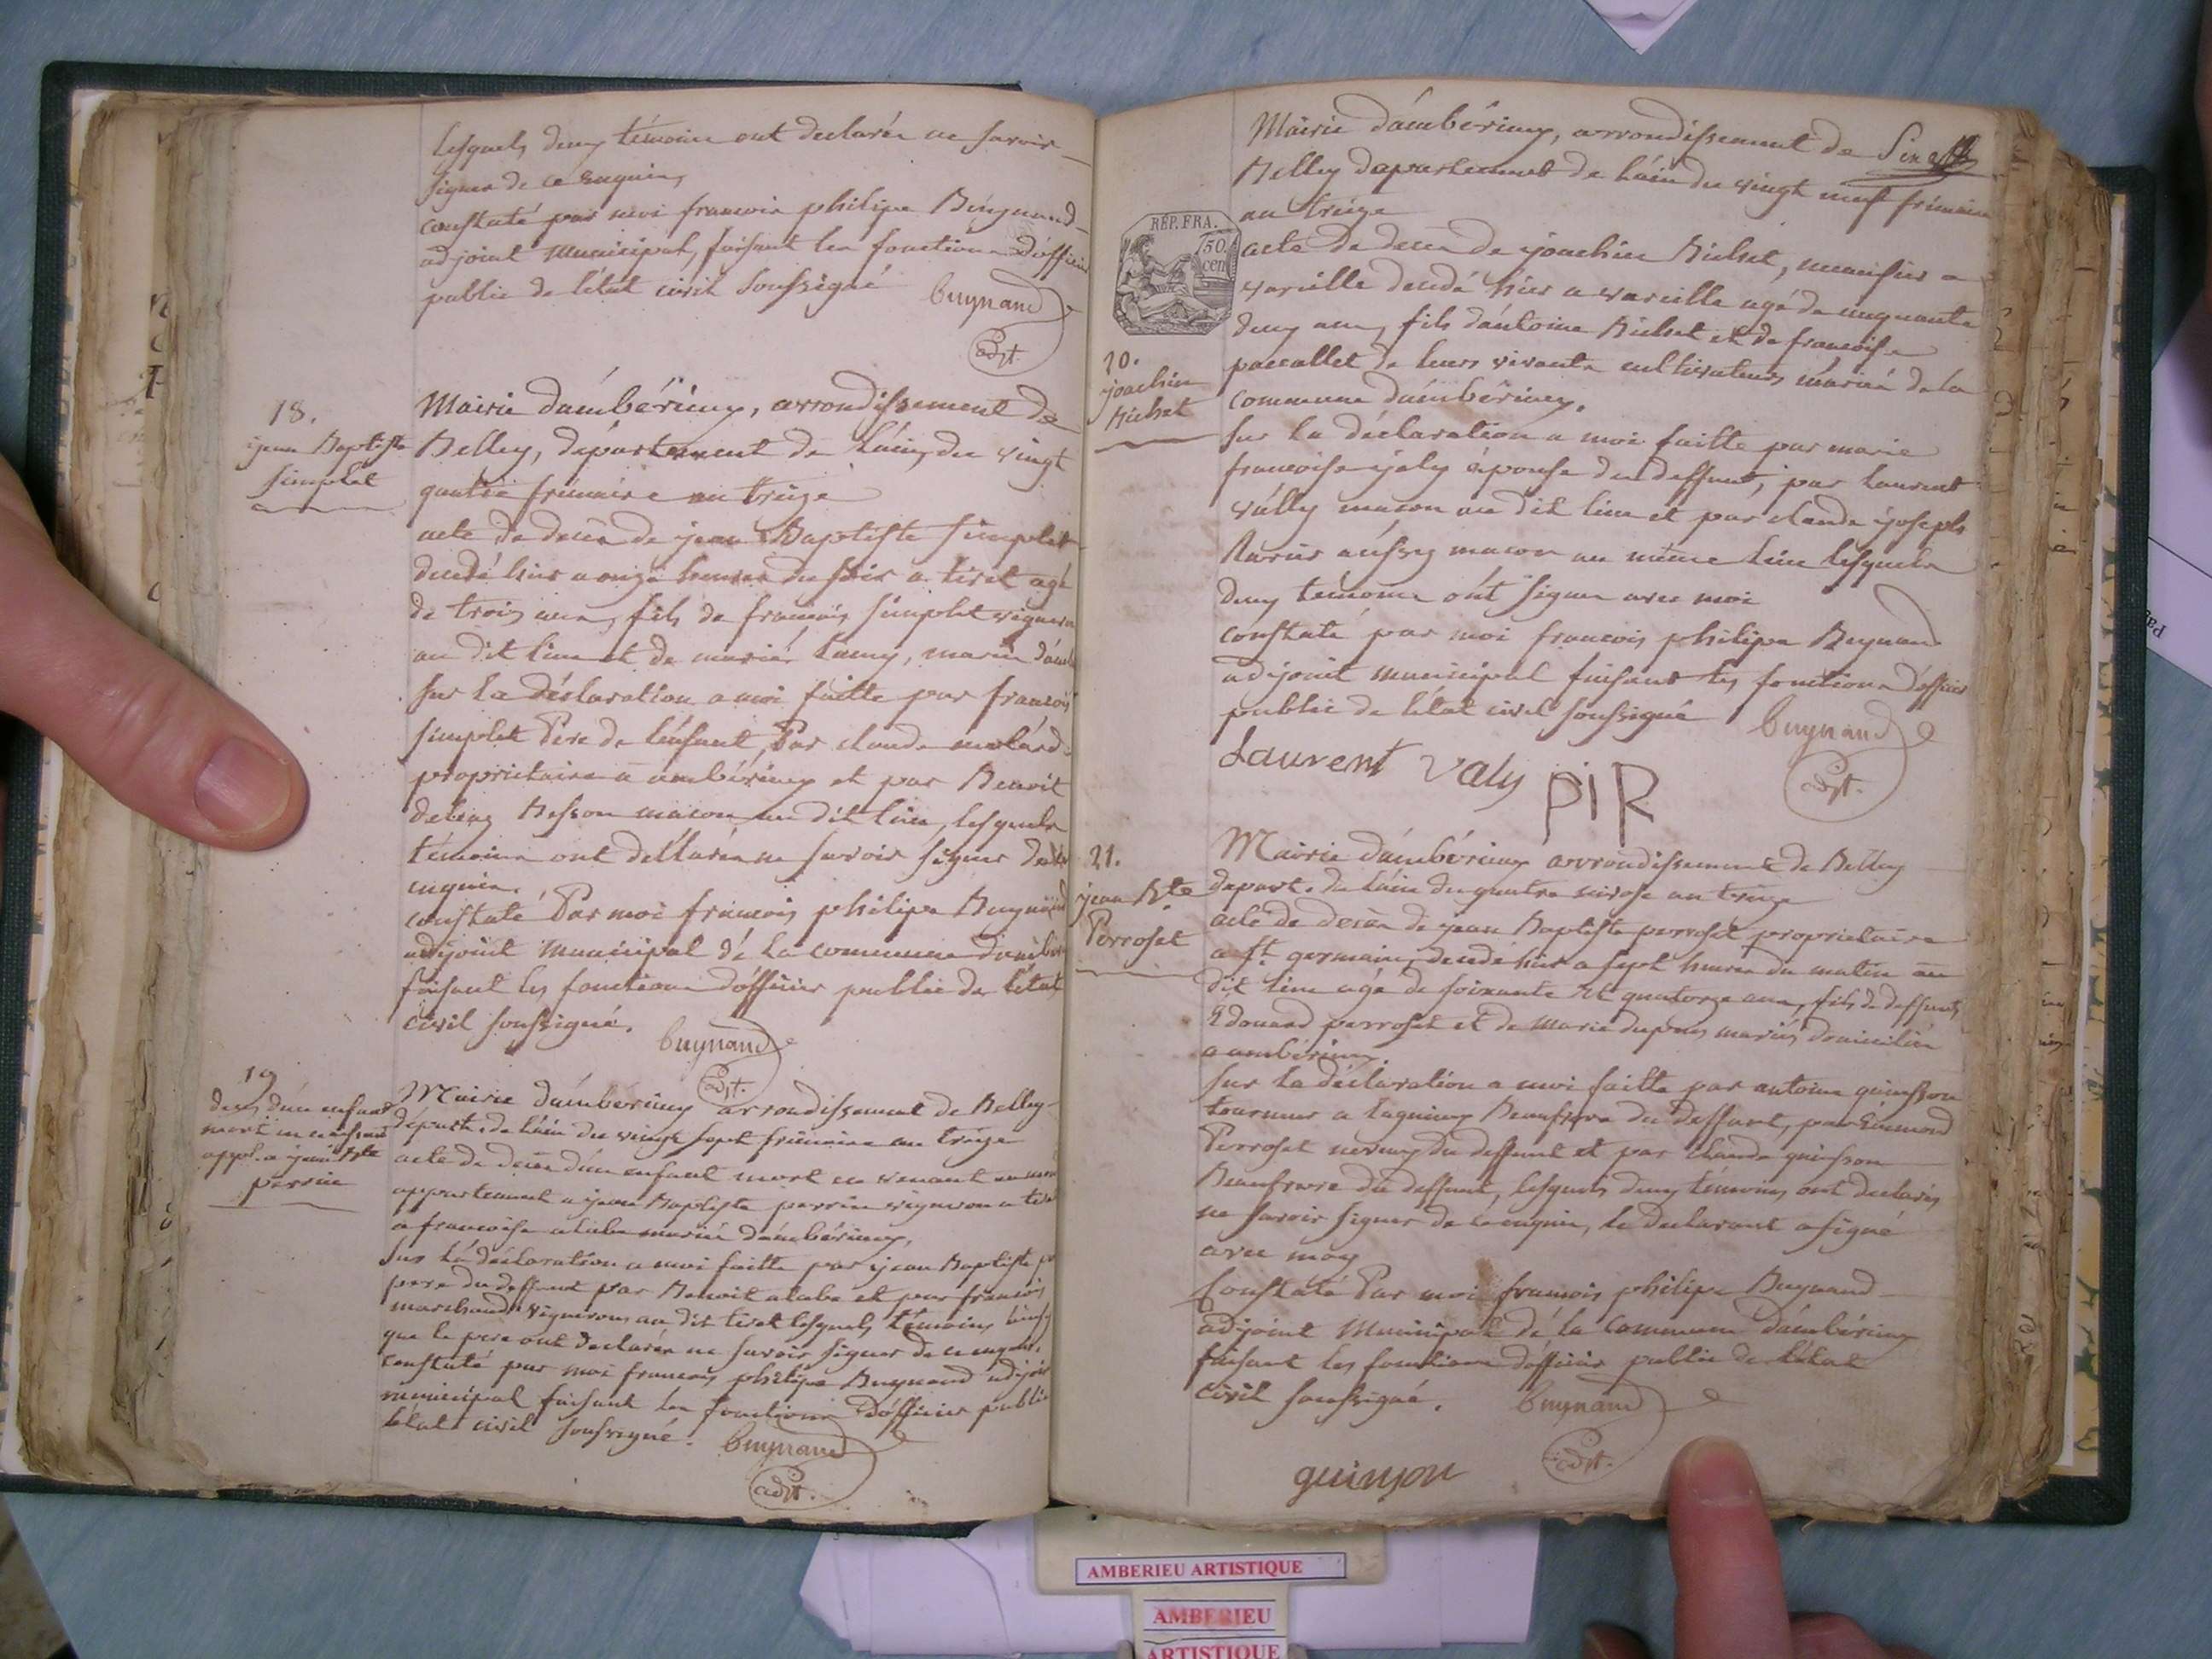 lesquels deux témoins ont declarés ne savoir
signer de ce enquis,
constaté par moi francois philipe Buynand
adjoint municipal, faisant les fonctions d'officier
public de l'état civil soussigné
buynand
adjt.
18.
jean Baptiste
simplet
Mairie d'ambérieux, arrondissement de
Belley, département de l'ain, du vingt
quatre frimaire an treize
acte de décès de jean Baptiste simplet
decedé hier a onze heures du soir a tiret agé
de trois ans, fils de francois simplet vigneron
au dit lieu et de mariés
sur la déclaration a moi faitte par francois
simplet Pere de l'enfant, Par claude
proprietaire a ambérieux et par Benoit
Besson macon au dit lieu, lesquels
témoins ont déclarés ne savoir signer de ce
enquis.
constaté Par moi francois philipe Buynand
adjoint municipal dé la commune d'ambér
faisant les fonctions d'officier public de l'état
civil soussigné.
buynand
adjt.
19
deces d'un enfant
mort en naissant
appt. a jean Bte
perrin
Mairie d'ambérieux arrondissement de Belley
départ. de l'ain du vingt sept frimaire an treize
acte de décès d'un enfant mort en venant au
appartenant a jean Baptiste perrin vigneron a tiret
a francoise alabe mariés d'ambérieux,
sur la déclaration a moi faitte par jean Baptiste
pere du deffunt par Benoit alabe et par francois
marchand vignerons au dit tiret lesquels témoins ainsy
que le pere ont declarés ne savoir signer de ce enquis.
constaté par moi francois philipe Buynand adjoint
municipal faisant les fonctions d'officier public
l'état civil soussigné.
buynand
adjt.
Mairie d'ambérieux, arrondissement de
Belley departement de l'ain du vingt neuf frimaire
an treize
REP. FRA.
50.
cen
20.
joachin
Bichet
acte de deces de joachin Bichet, menuisier a
vareille decedé hier a vareille agé de cinquante
deux ans, fils d'antoine Bichet et de francoise
pascallet de leurs vivants cultivateurs mariés de la
commune d'ambérieux.
sur la déclaration a moi faitte par marie
francoise joly épouse du deffunt, par laurent
vally macon au dit lieu et par claude joseph
aussy macon au même lieu lesquels
deux temoins ont signer avec moi
constaté par moi francois philipe Buynand
adjoint municipal faisant les fonctions d'officier
public de l'état civil soussigné
buynand
adjt.
Laurent valy PIR
21.
jean Bte
Perroset
Mairie d'ambérieux arrondissement de Belley
depart. de l'ain du quatre nivose an treize
acte de deces de jean Baptiste perroset proprietaire
a st. germain, decedé hier a sept heures du matin au
dit lieu agé de soixante et quatorze ans, fils de deffunts
Edouard perroset et de Marie dupuis mariés domiciliés
a ambérieux.
sur la déclaration a moi faitte par antoine guinsson
tourneur a lagnieux Beaufrere du deffunt, par Edmond
Perroset neveux du deffunt et par claude guinsson
Beaufrere du deffunt, lesquels deux témoins ont declarés
ne savoir signer de ce enquis, le declarant a signé
avec moy
Constaté Par moi francois philipe Buynand
adjoint Municipal dé la Commune d'ambérieux
faisant les fonctions d'officier public de l'état
civil soussigné.
buynand
adjt.
guinson
AMBERIEU ARTISTIQUE
AMBERIEU
ARTISTIQUE